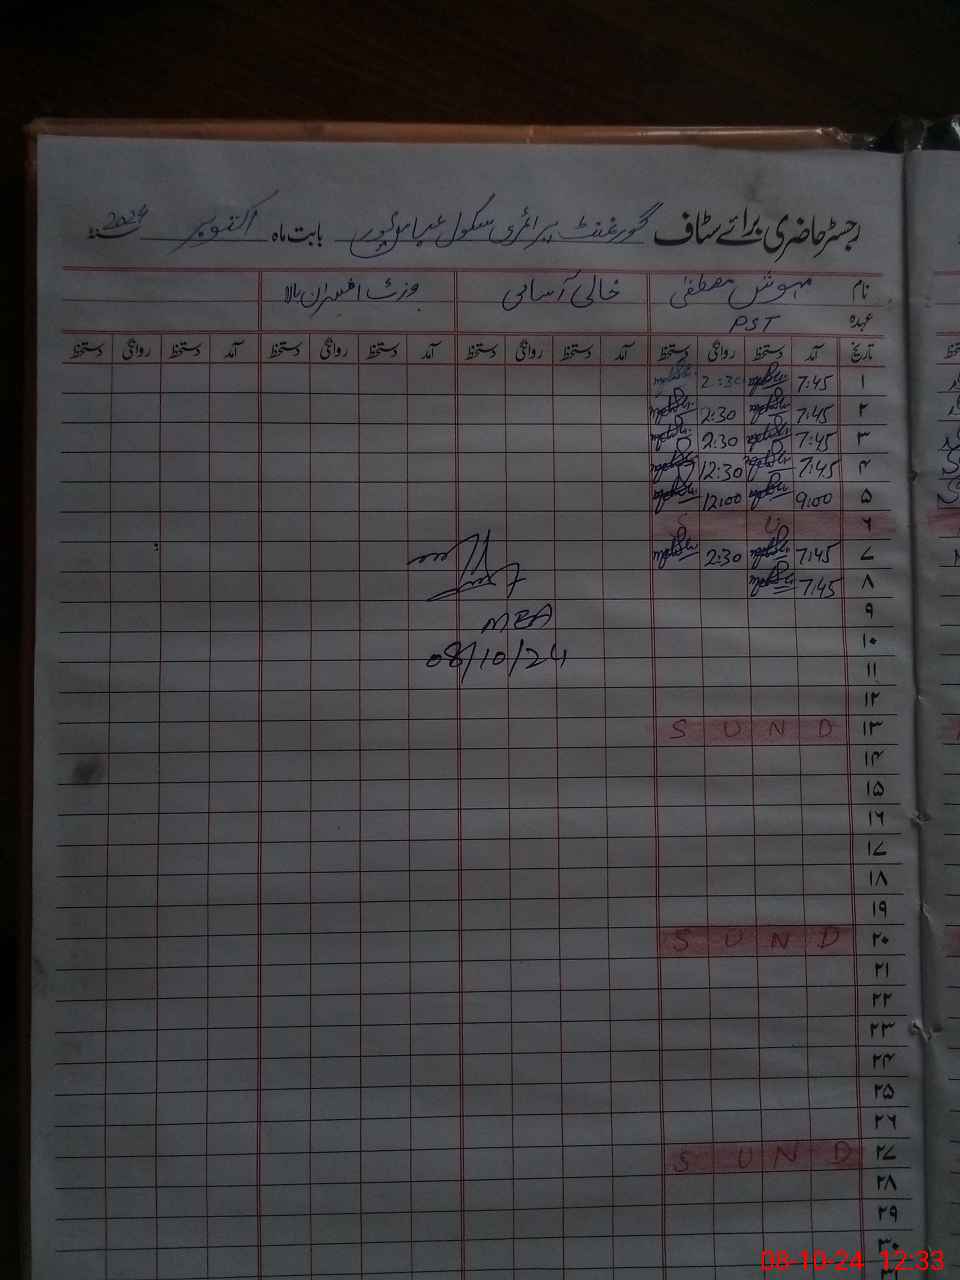 رجسٹر حاضری برائے سٹاف گورنمنٹ پرائمری سکول عباس پور بابت ماہ اکتوبر 2024ء
نام مہوش مصطفیٰ خالی آسامی وزٹ افسران بالا
عہدہ PST
تاریخ آمد دستخط روانگی دستخط آمد دستخط روانگی دستخط آمد دستخط روانگی دستخط آمد دستخط روانگی دستخط
۱ 7:45 2:30
۲ 7:45 2:30
۳ 7:45 2:30
۴ 7:45 12:30
۵ 9:00 12:00
۶
۷ 7:45 2:30
۸ 7:45
۹ MEA
۱۰ 08/10/24
۱۱
۱۲
۱۳ S U N D
۱۴
۱۵
۱۶
۱۷
۱۸
۱۹
۲۰ S U N D
۲۱
۲۲
۲۳
۲۴
۲۵
۲۶
۲۷ S U N D
۲۸
۲۹
۳۰
08-10-24 12:33